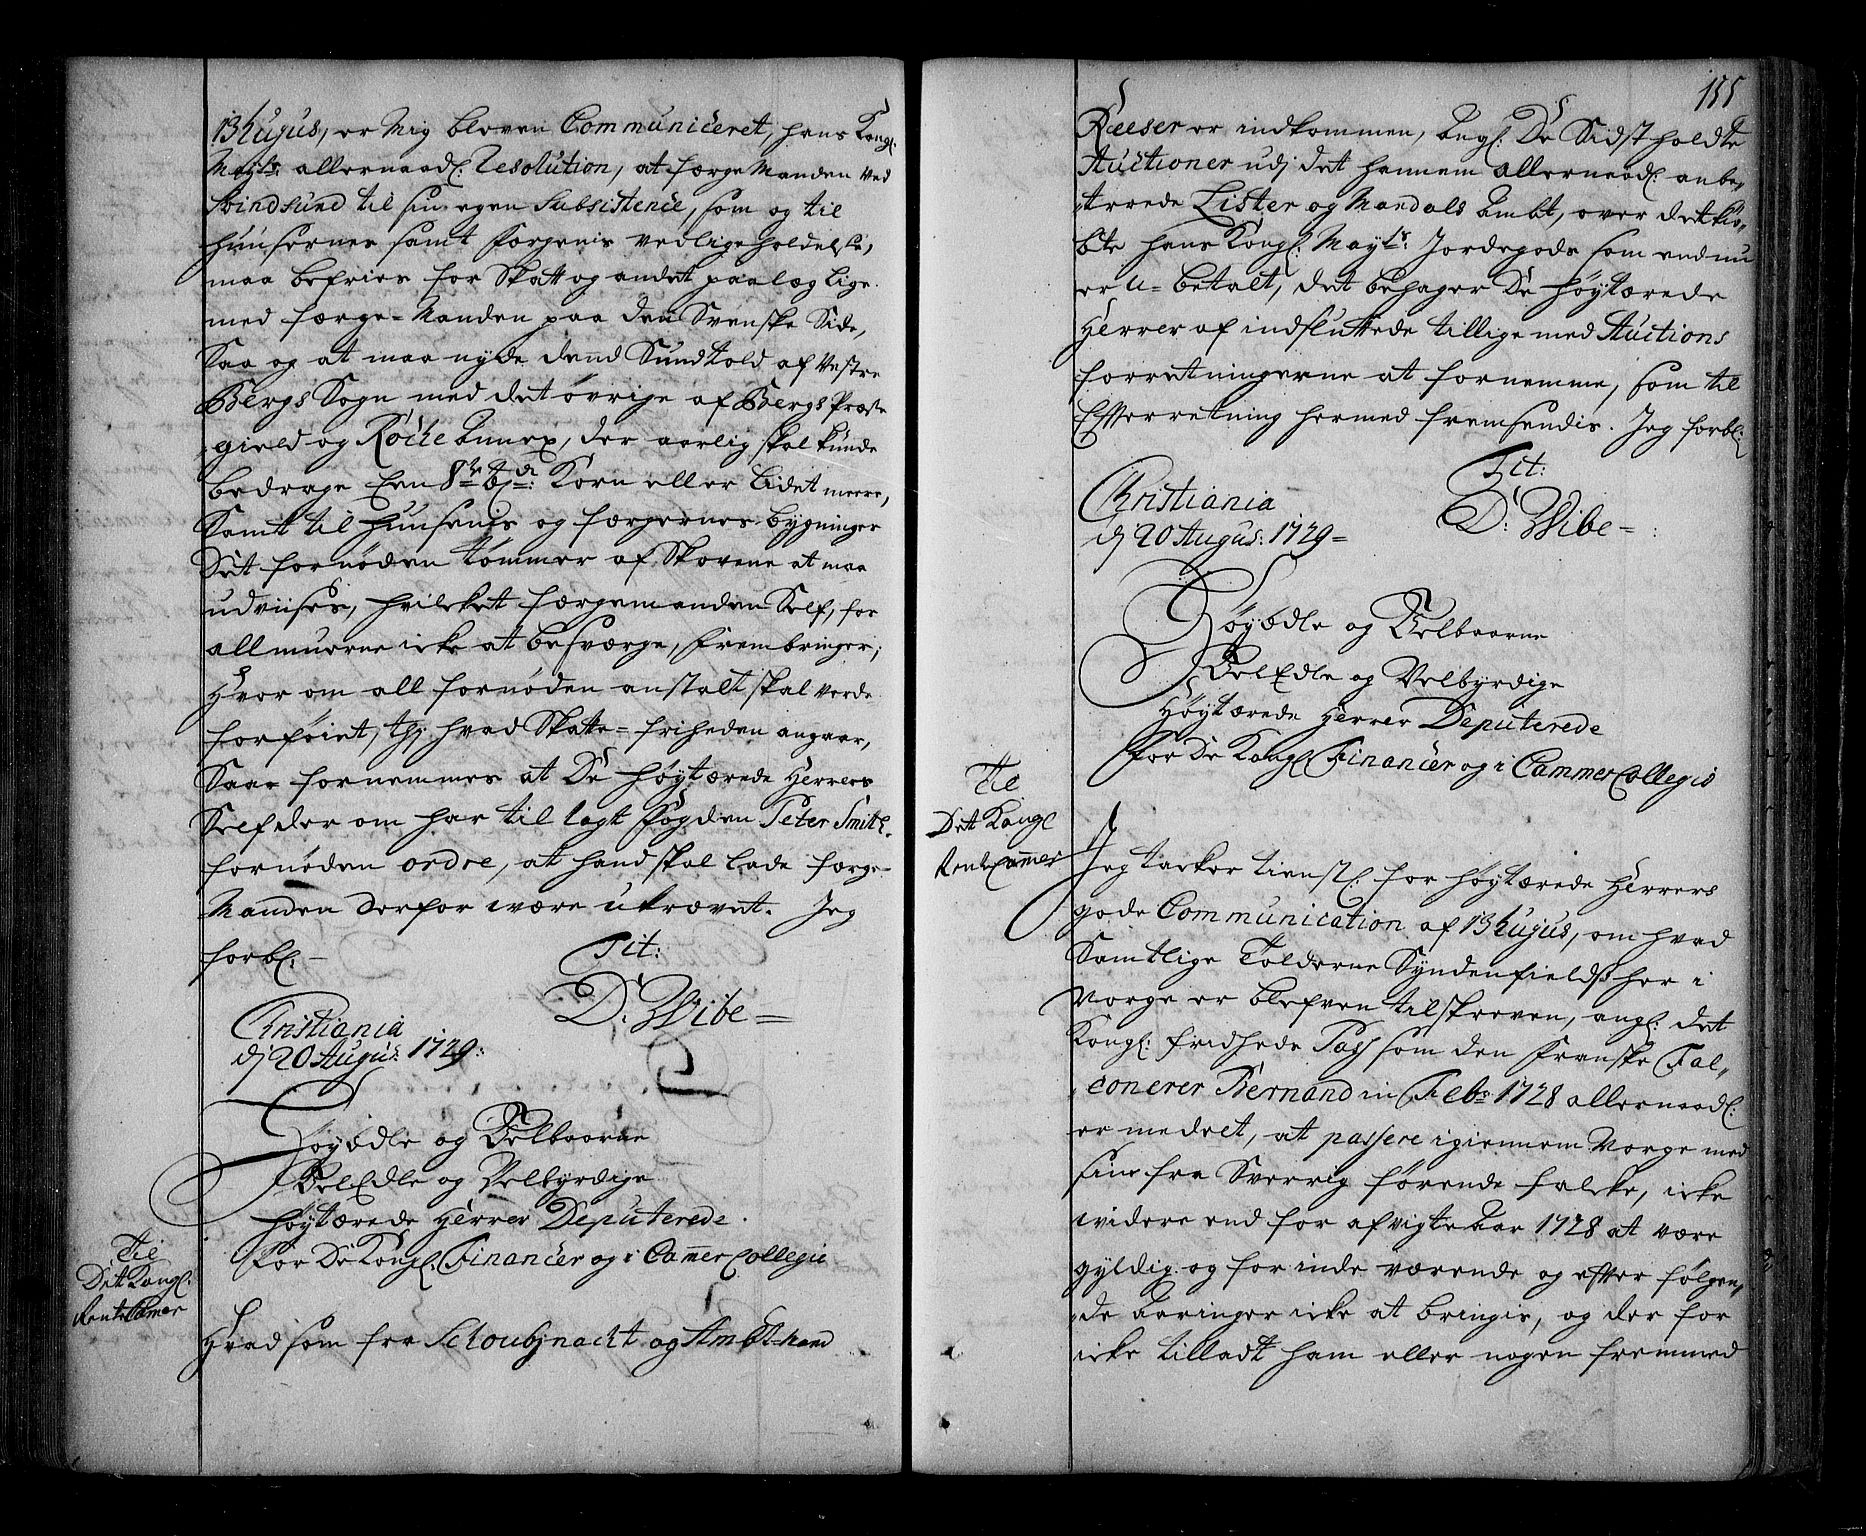 13 hujus, er Mig bleven Communiceret, hans Kongl:
Mayts: allernaad: Resolution, at færge Manden ved
Svindsund til sin egen Subsistence, som og til
huusernes samt færgenis vedligeholdelse,
maa befries for Skatt og andet paalæg lige
med færge-Manden paa den Svenske Side,
Saa og at maa nyde dend Sundtold af Vestre
Bergs Sogn med det øvrige af Bergs Præste
gield og Røche Annex, der aarlig skal kunde
bedrage Korn eller lidet meere,
Samt til huusenis og færgernes bygninger
Dit fornøden tømmer af Skovene at maa
udviises, hvilcket færgemanden Self, for
allmuerne icke at besværge, frembringer;
Hvor om all fornøden anstalt skal vorde
forføiet, thj hvad Skatte-friheden angaar,
Saa fornemmes at De høytærede Herrers
Self der om har tillagt Fogden Peter Smith
fornøden ordre, at hand skal lade færge-
Manden derfor være ukrævet. Jeg
forbl:
Tit:
D: Wibe
Christiania
dj 20 Augus: 1729:
Høyædle og Velbaarne
VelEdle og Velbyrdige
Høytærede Herrer Deputerede
for De Kongl: Financer og i CammerCollegio
Til
Det Kongl:
RenteCamer
Hvad som fra Schoubynacht og Ambtmand
155
Reeser er indkommen, angl: De Sidst holdte
Auctioner udj det hannem allernaad: anbe-
troede Lister og Mandals Ambt, over det kiø-
bte hans Kongl: Mayts: Jordegods som endnu
er U-betalt, det behager De høytærede
Herrer af indsluttede tillige med Auctions
forretningerne at fornemme, som til
Efterretning hermed fremsendis. Jeg forbl:
Tit:
D: Wibe
Christiania
dj 20 Augus: 1729
Høyædle og Velbaarne
VelEdle og Velbyrdige
Høytærede Herrer Deputerede
for De Kongl Financer og i CammerCollegio
Til
Det Kongl
RenteCammer
Jeg tacker tienstl: for høytærede Herrers
gode Communication af 13 hujus, om hvad
Samtlige Tolderne Syndenfields her i
Norge er blefven tilskreven, angl: det
Kongl: fridhede Pass som den Franske Fal-
conerer Bernand in Febr 1728 allernaadl:
er meddeelt, at passere igiennem Norge med
sine fra Sverrig førende falcke, icke
widere end for afvigte Aar 1728 at være
gyldig og for inde værende og efter følgen-
de Aaringer icke at bringis, og der for
icke tilladt ham eller nogen fremmed